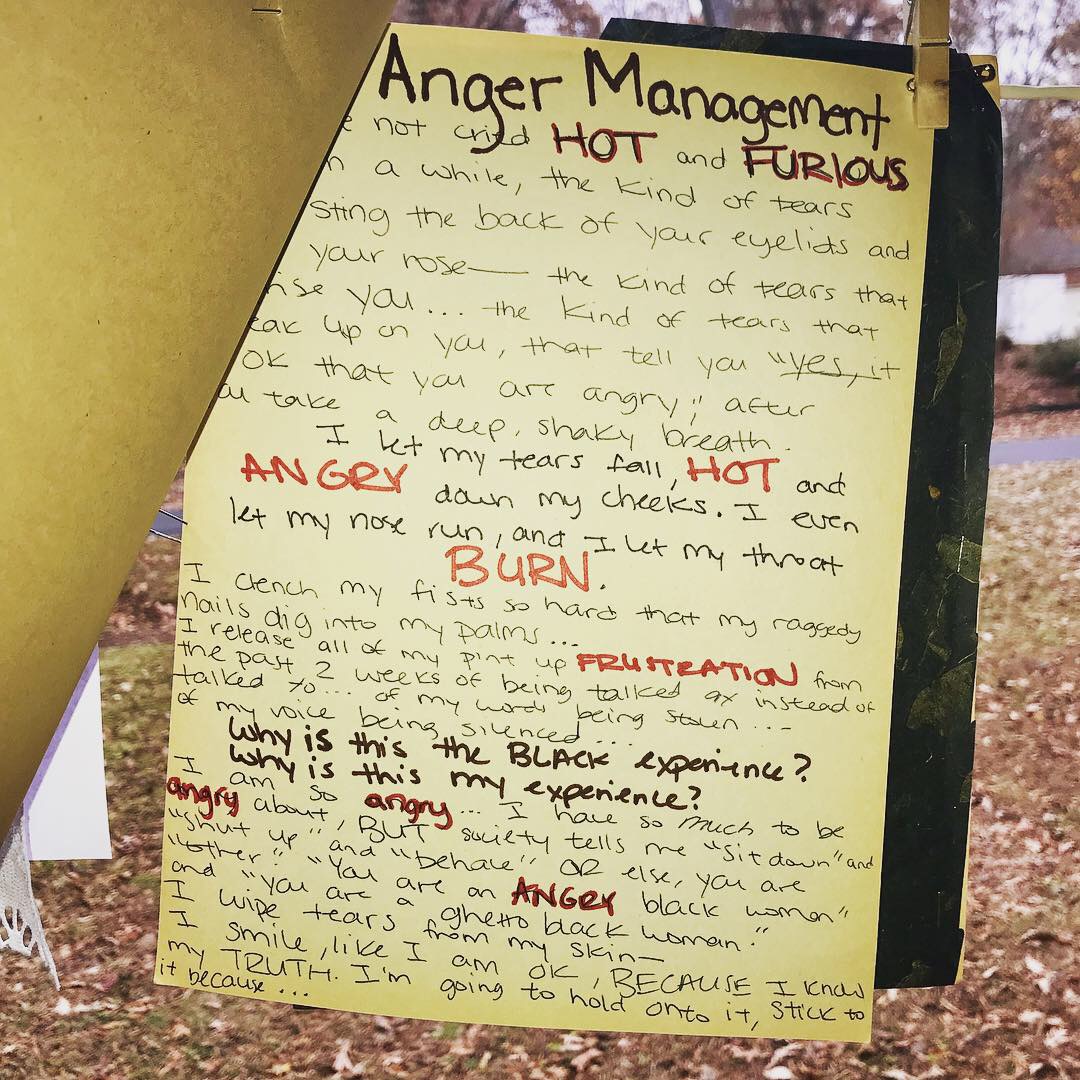 Anger Management
not cried HOT and FURIOUS
a while, the kind of tears
sting the back of your eyelids and
your nose— the kind of tears that
you... the kind of tears that
up on you, that tell you "yes, it
OK that you are angry", after
take a deep, shaky breath.
I let my tears fall, HOT and
ANGRY down my cheeks. I even
let my nose run, and I let my throat
BURN.
I clench my fists so hard that my raggedy
nails dig into my palms...
I release all of my pint up FRUSTRATION from
the past 2 weeks of being talked at instead of
talked to... of my words being stolen...
of my voice being silenced...
Why is this the BLACK experience?
Why is this my experience?
I am so angry... I have so much to be
angry about, BUT society tells me "sit down" and
"shut up" and "behave" OR else, you are
"other." "You are an ANGRY black woman"
and "you are a ghetto black woman."
I wipe tears from my skin—
I smile, like I am OK, BECAUSE I know
my TRUTH. I'm going to hold onto it, stick to
it because...